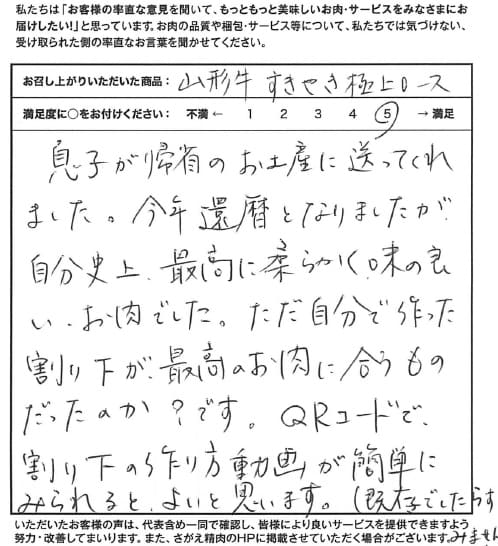 私たちは「お客様の率直な意見を聞いて、もっともっと美味しいお肉・サービスをみなさまにお
届けしたい!」と思っています。お肉の品質や梱包・サービス等について、私たちでは気づけない、
受け取られた側の率直なお言葉を聞かせてください。
お召し上がりいただいた商品： 山形牛 すきやき極上ロース
満足度に○をお付けください： 不満 ← 1 2 3 4 5 → 満足
息子が帰省のお土産に送ってくれ
ました。今年還暦となりましたが
自分史上、最高に柔らかく、味の良
い、お肉でした。ただ自分で作った
割り下が、最高のお肉に合うもの
だったのか？です。QRコードで、
割り下の作り方動画が簡単に
みられると、よいと思います。(既存でしたらす
みません
いただいたお客様の声は、代表含め一同で確認し、皆様により良いサービスを提供できますよう
努力・改善してまいります。また、さがえ精肉のHPに掲載させていただく場合がございます。